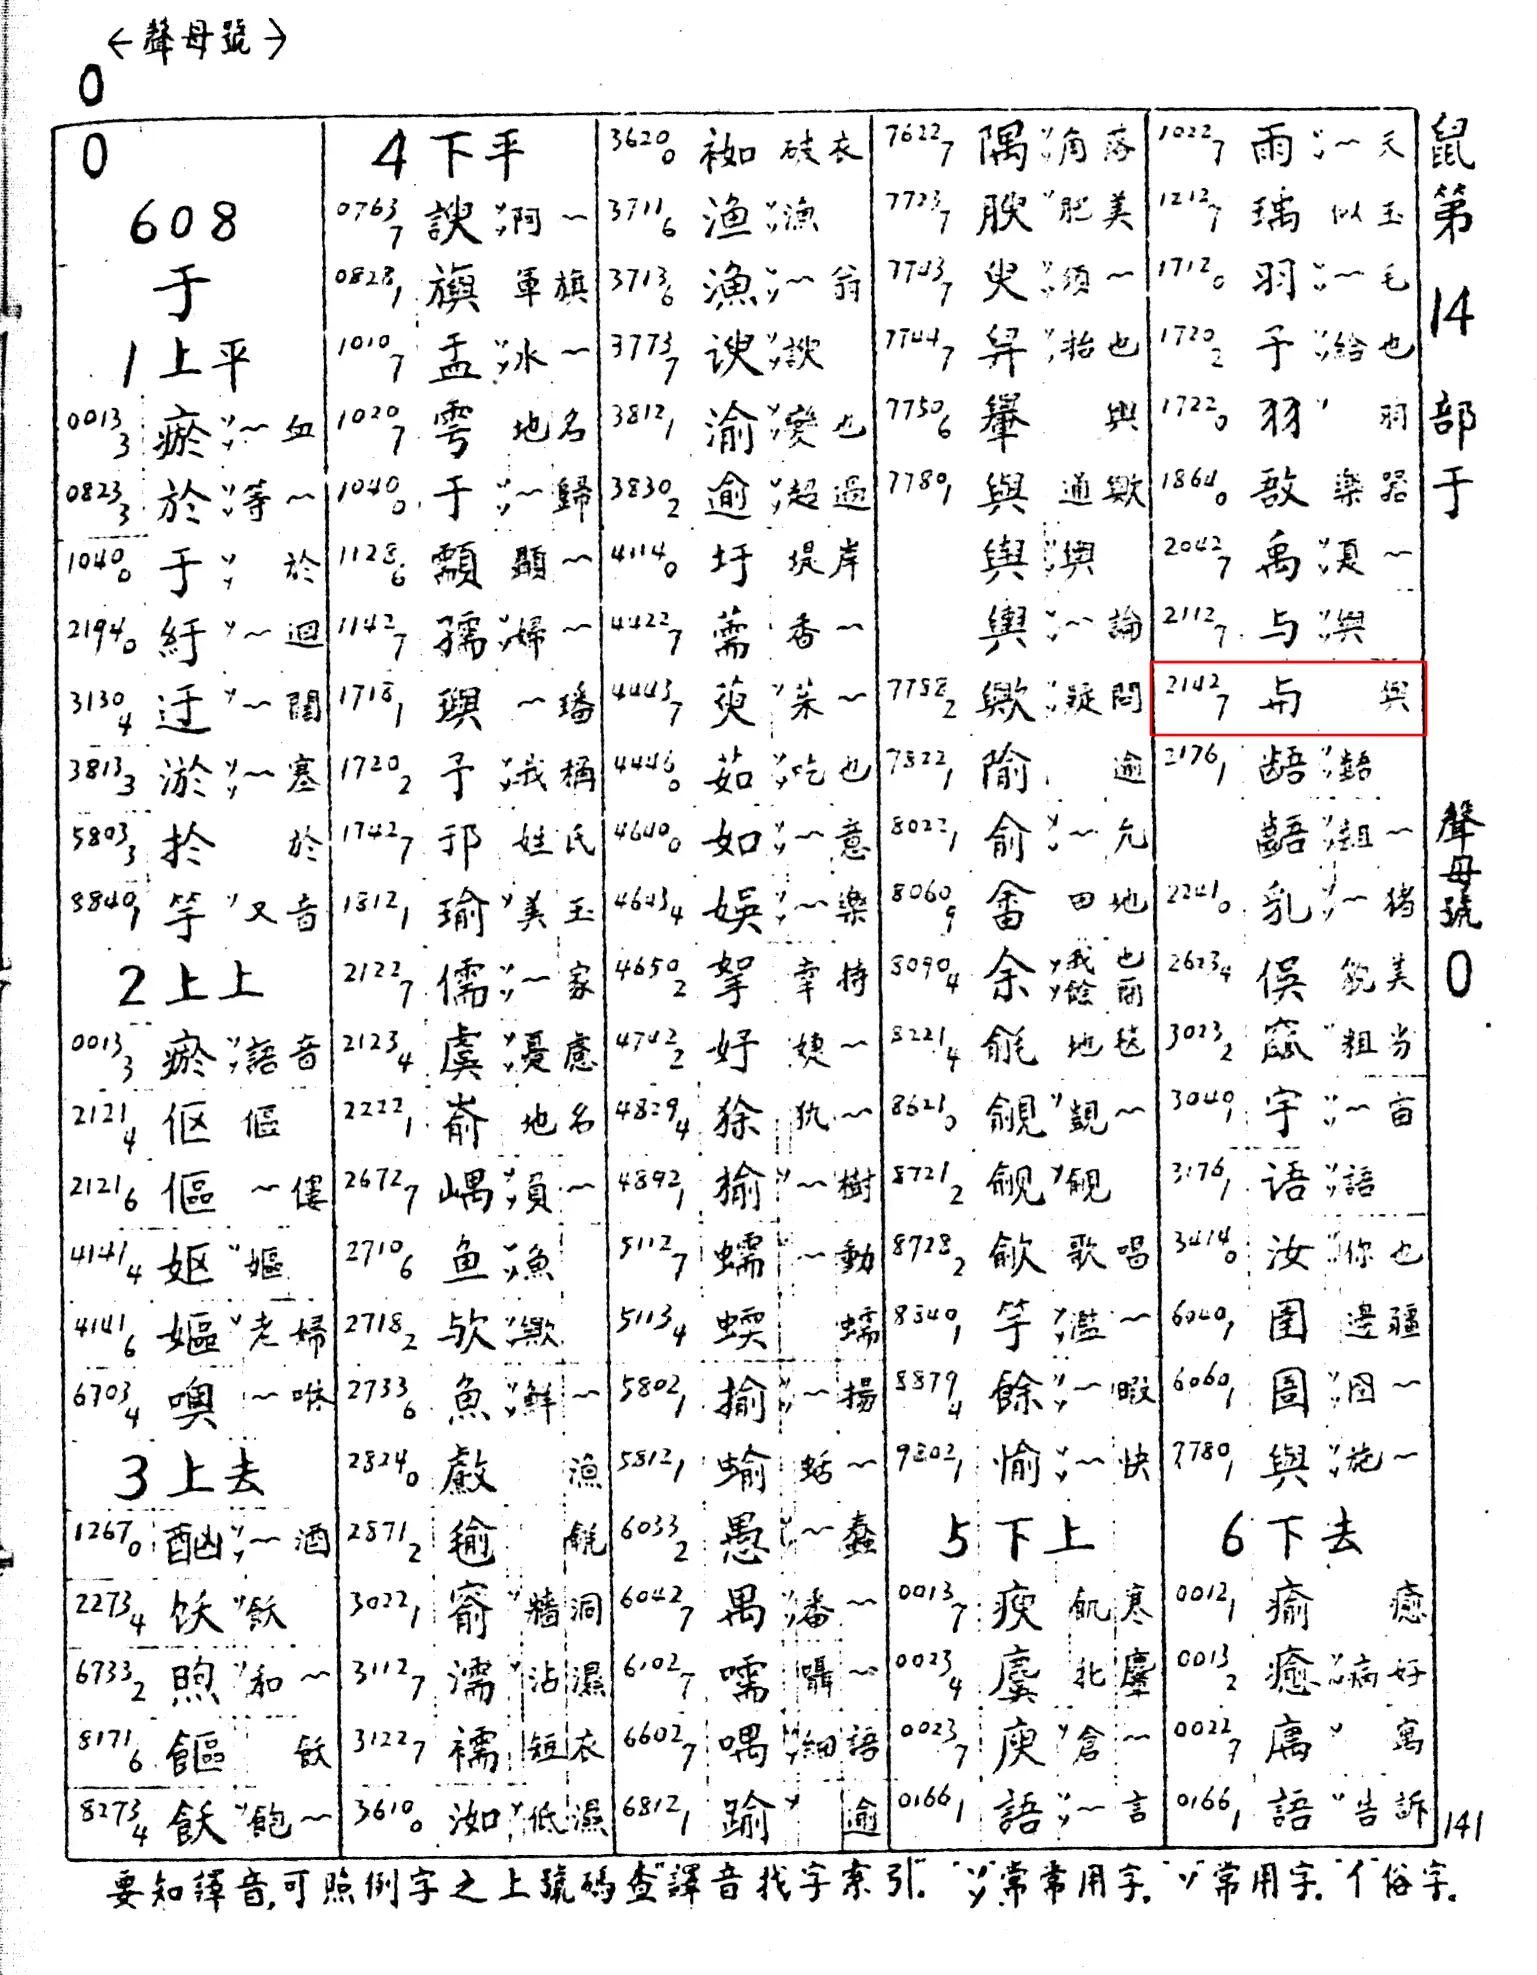 <聲母號>
0
0
608
于
1上平
0013₃ 瘀 ソソ ~血
0823₃ 於 ソソ 等~
1040₀ 于 ソソ 於
2194₀ 紆 ソ ~迴
3130₄ 迂 ソ ~闊
3813₃ 淤 ソソ ~塞
5803₃ 扵 於
8840₁ 竽 ソ 又音
2上上
0013₃ 瘀 ソソ 語音
2121₄ 伛 傴
2121₆ 傴 ~僂
4141₄ 妪 ソ 嫗
4141₆ 嫗 ソ 老婦
6703₄ 噢 ~咻
3上去
1267₀ 酗 ソソ ~酒
2273₄ 饫 ソ 飫
6733₂ 煦 ソ 和~
8171₆ 饇 飫
8273₄ 飫 ソ 飽~
4下平
0763₇ 諛 ソソ 阿~
0828₁ 旟 軍旗
1010₇ 盂 ソソ 水~
1020₇ 雩 地名
1040₀ 于 ソソ ~歸
1128₆ 顬 顳~
1142₇ 孺 ソソ 婦~
1718₁ 璵 ~璠
1720₂ 予 ソソ 我稱
1742₇ 邘 姓氏
1812₁ 瑜 ソ 美玉
2122₇ 儒 ソソ ~家
2123₄ 虞 ソソ 憂慮
2222₁ 嵛 地名
2672₇ 嵎 ソソ 負~
2710₆ 鱼 ソソ 魚
2718₂ 欤 ソソ 歟
2733₆ 魚 ソソ 鮮~
2824₀ 䱷 漁
2871₂ 毺 毹
3022₁ 窬 ソ 牆洞
3112₇ 濡 ソソ 沾濕
3122₇ 襦 短衣
3610₀ 洳 ソソ 低濕
3620₀ 袽 破衣
3711₆ 渔 ソソ 漁
3713₆ 漁 ソソ ~翁
3773₇ 谀 ソソ 諛
3812₁ 渝 ソソ 變也
3830₂ 逾 ソソ 超過
4114₀ 圩 堤岸
4422₇ 薷 香~
4443₇ 萸 ソソ 茱~
4446₀ 茹 ソソ 吃也
4640₀ 如 ソソ ~意
4643₄ 娛 ソソ ~樂
4650₂ 挐 牽持
4742₂ 妤 婕~
4829₄ 狳 犰~
4892₁ 榆 ソソ ~樹
5112₇ 蠕 ソ ~動
5113₄ 蝡 蠕
5802₁ 揄 ソソ ~揚
5812₁ 蝓 蛞~
6033₂ 愚 ソソ ~蠢
6042₇ 禺 ソソ 番~
6102₇ 嚅 囁~
6602₇ 喁 ソソ 細語
6812₁ 踰 ソ 逾
7622₇ 隅 ソソ 角落
7723₇ 腴 ソ 肥美
7743₇ 臾 ソソ 須~
7744₇ 舁 ソソ 抬也
7750₆ 轝 輿
7780₁ 與 通歟
舆 ソソ 輿
輿 ソソ ~論
7758₂ 歟 ソソ 疑問
7822₁ 隃 逾
8022₁ 俞 ソソ ~允
8060₉ 畬 田地
8090₄ 余 ソソ 我也 ソソ 餘閒
8221₄ 毹 地毯
8621₀ 覦 ソ 覬~
8721₂ 觎 ソ 覦
8728₂ 歈 歌唱
8840₁ 竽 ソソ 濫~
8879₄ 餘 ソソ ~暇
9802₁ 愉 ソソ ~快
5下上
0013₇ 瘐 飢寒
0023₄ 麌 牝麞
0023₇ 庾 ソ 倉~
0166₁ 語 ソソ ~言
1022₇ 雨 ソソ ~天
1212₇ 瑀 似玉
1712₀ 羽 ソソ ~毛
1720₂ 予 ソソ 給也
1722₀ 羽 ソ 羽
1864₀ 敔 樂器
2042₇ 禹 ソソ 夏~
2112₇ 与 ソソ 與
2142₇ 与 與
2176₁ 龉 ソソ 齬
齬 ソソ 齟~
2241₀ 乳 ソソ ~豬
2623₄ 俁 貌美
3023₂ 窳 ソ 粗劣
3040₁ 宇 ソソ ~宙
3176₁ 语 ソソ 語
3414₀ 汝 ソソ 你也
6040₁ 圉 邊疆
6060₁ 圄 ソソ 囹~
7780₁ 與 ソソ 施~
6下去
0012₁ 瘉 癒
0013₂ 癒 ソソ 病好
0022₇ 庽 ソ 寓
0166₁ 語 ソソ 告訴
鼠第14部于
聲母號0
141
要知譯音,可照例字之上號碼查"譯音找字索引". "ソソ"常常用字. "ソ"常用字. "亻"俗字.